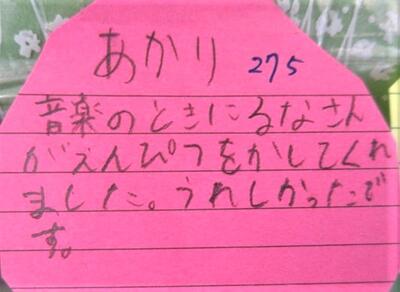 あかり 275
音楽のときにるなさん
がえんぴつをかしてくれ
ました。うれしかったで
す。